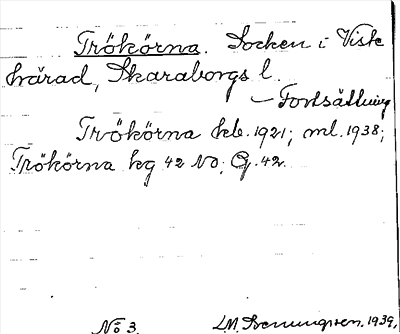 Trökörna. Socken i Viste
härad, Skaraborgs l.
— Fortsättning
Trökörna kb. 1921; ml. 1938;
Trökörna kg 42 NO; G. 42.
No 3. 1939.